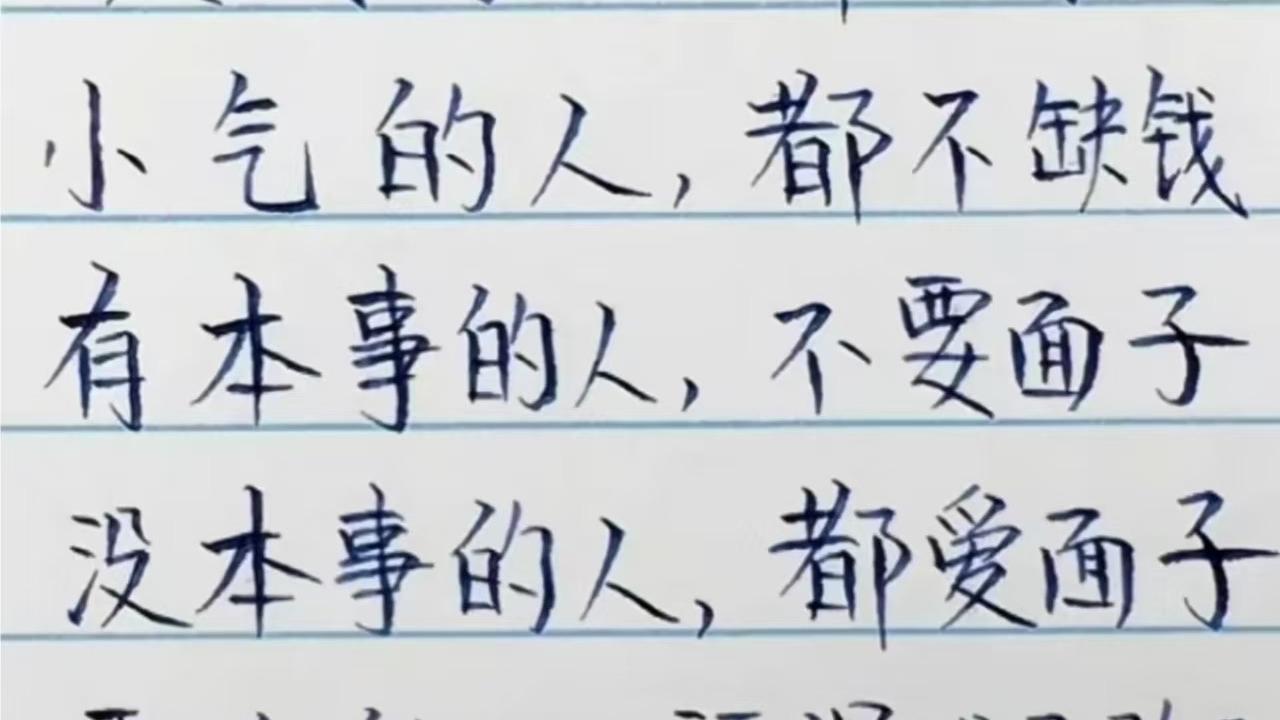 小气的人，都不缺钱
有本事的人，不要面子
没本事的人，都爱面子